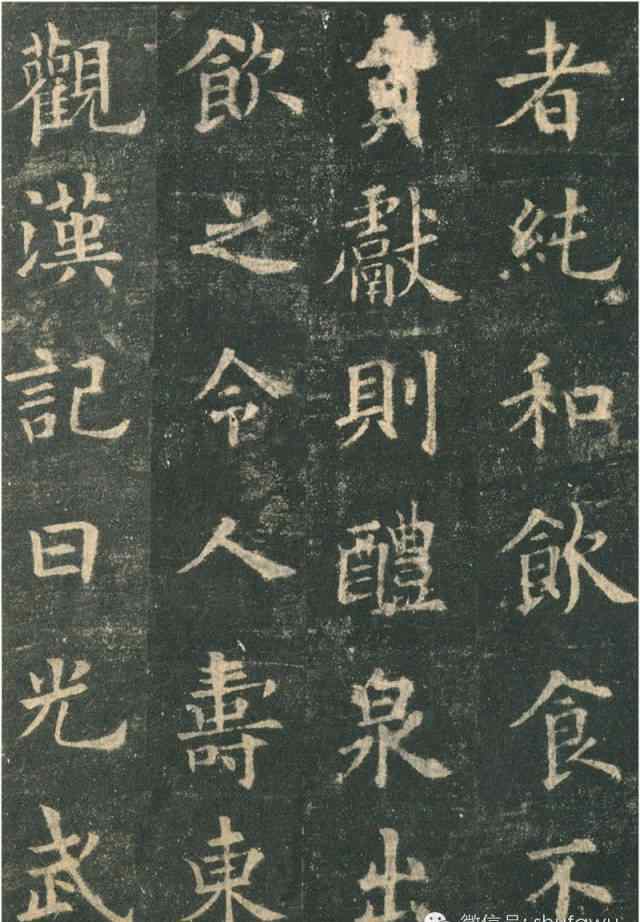 者純和飲食不
貢獻則醴泉出
飲之令人壽東
觀漢記曰光武
微信号: shufawu